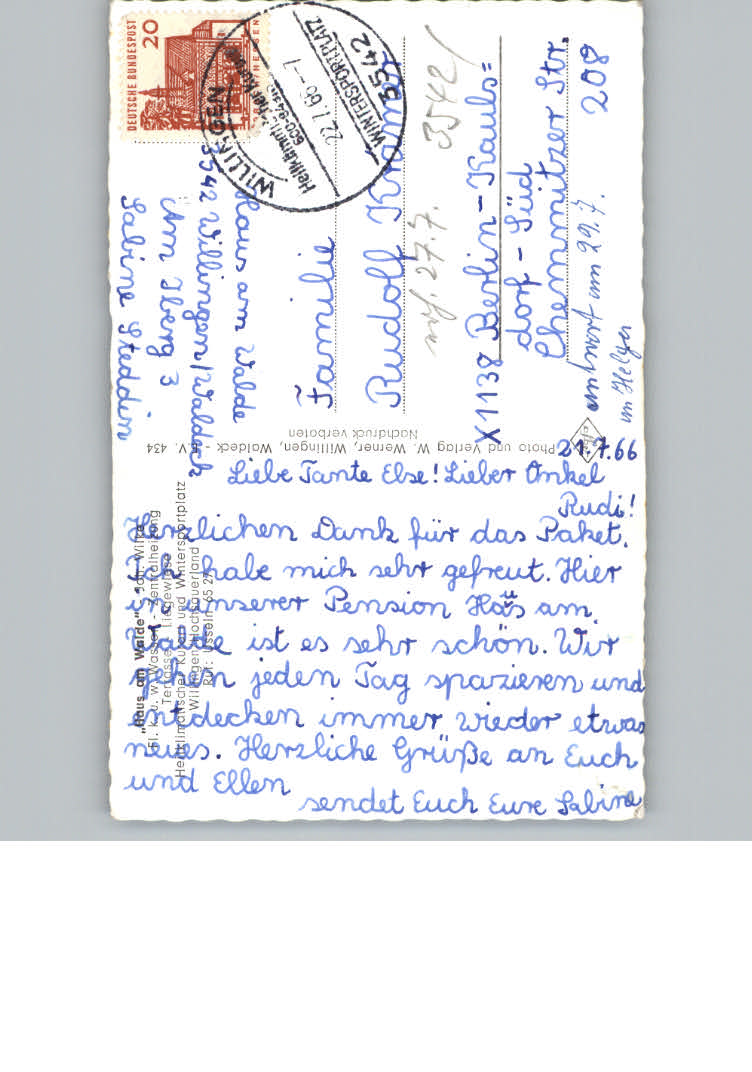 DEUTSCHE BUNDESPOST
20
WILLINGEN
3542
22.7.66-7
WINTERSPORTPLATZ
Sabine Steddin
Am Iberg 3
3542 Willingen/Waldeck
Haus am Walde
Familie
Rudolf
3542/
27.7.
X1138 Berlin-Kauls=
dorf-Süd
Chemnitzer Str.
208
Antwort am 29.7.
an Helga
Photo und Verlag W. Werner, Willingen, Waldeck - E.V. 434
Nachdruck verboten
„Haus am Walde"
Fl. k. u. w. Wasser - Zentralheizung
Terrasse - Liegewiese
Heilklimatischer Kurort und Wintersportplatz
Willingen/Hochsauerland
Ruf: Usseln 65 27
21.7.66
Liebe Tante Else! Lieber Onkel
Rudi!
Herzlichen Dank für das Paket.
Ich habe mich sehr gefreut. Hier
in unserer Pension Haus am
Walde ist es sehr schön. Wir
gehen jeden Tag spazieren und
entdecken immer wieder etwas
neues. Herzliche Grüße an Euch
und Ellen
sendet Euch Eure Sabine